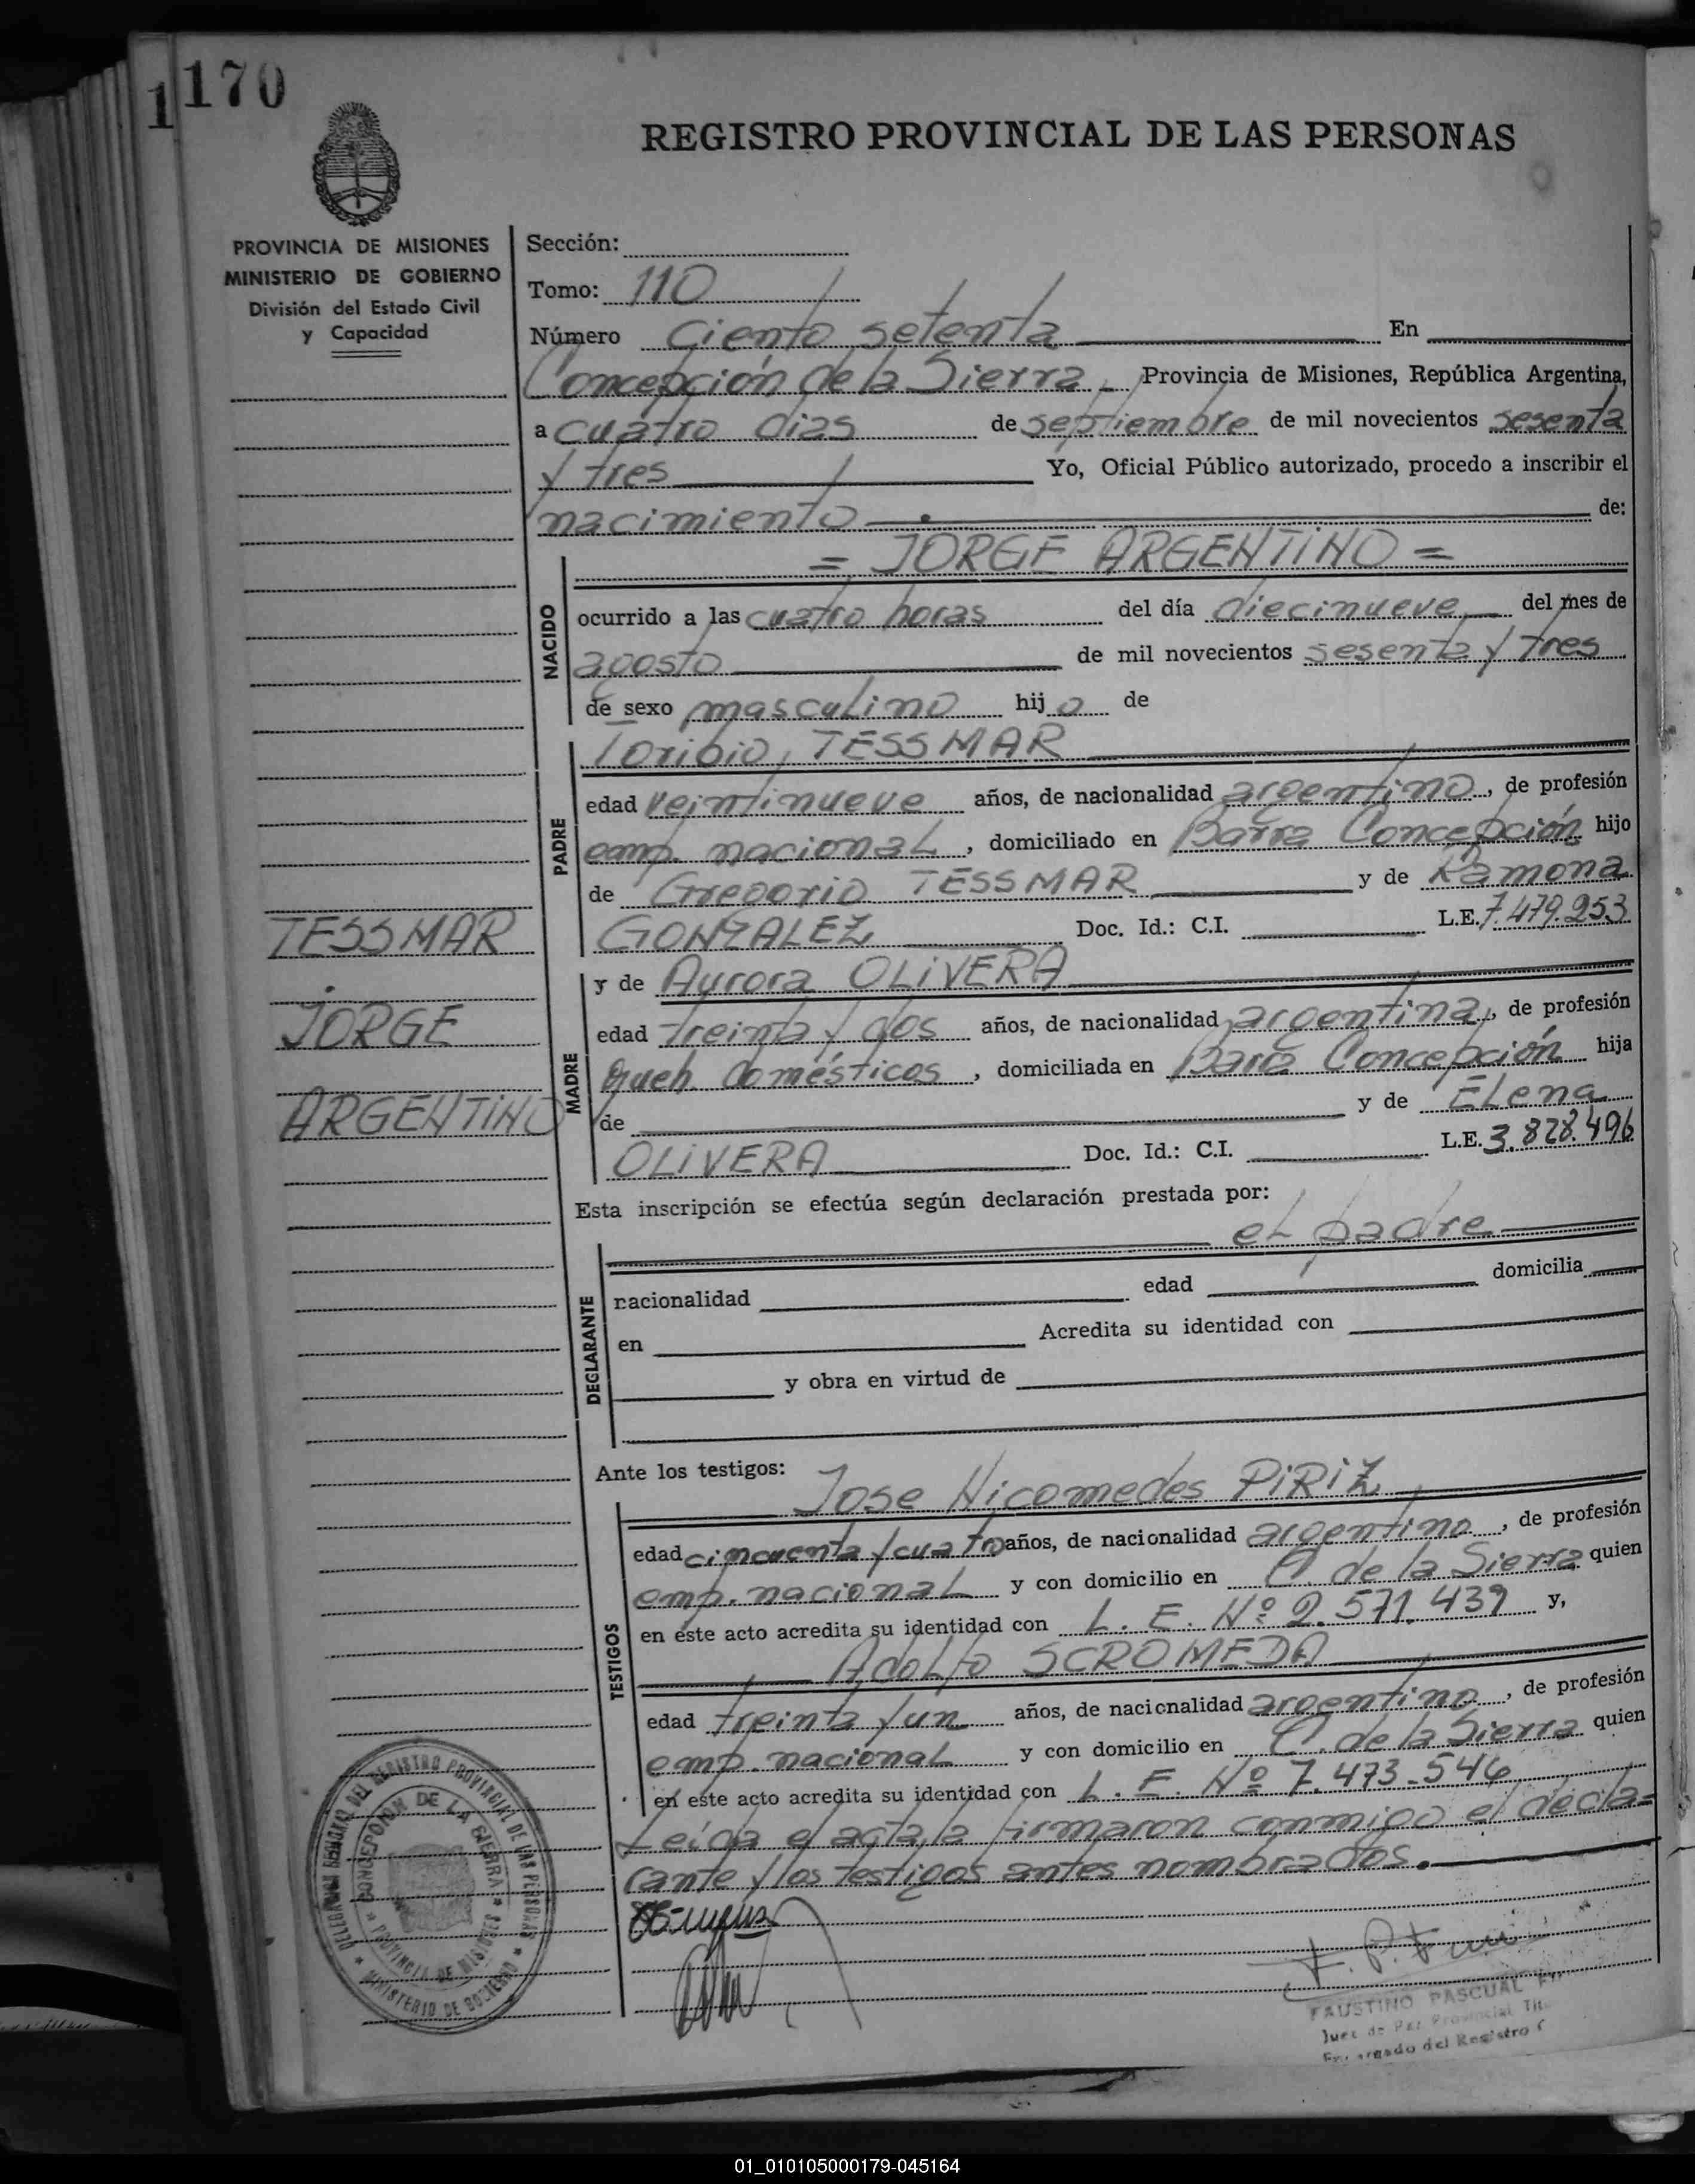 1170
REGISTRO PROVINCIAL DE LAS PERSONAS
PROVINCIA DE MISIONES
MINISTERIO DE GOBIERNO
División del Estado Civil
y Capacidad
Sección:
Tomo: 110
Número ciento setenta En
Concepción de la Sierra, Provincia de Misiones, República Argentina,
a cuatro dias de septiembre de mil novecientos sesenta
y tres Yo, Oficial Público autorizado, procedo a inscribir el
nacimiento de:
= JORGE ARGENTINO =
NACIDO
ocurrido a las cuatro horas del día diecinueve del mes de
agosto de mil novecientos sesenta y tres
de sexo masculino hijo de
Toribio, TESSMAR
PADRE
edad veintinueve años, de nacionalidad argentino, de profesión
emp. nacional, domiciliado en Barra Concepción hijo
de Gregorio TESSMAR y de Ramona
GONZALEZ Doc. Id.: C.I. L.E. 7.479.253
TESSMAR
JORGE
ARGENTINO
MADRE
y de Aurora OLIVERA
edad treinta y dos años, de nacionalidad argentina, de profesión
queh. domésticos, domiciliada en Barra Concepción hija
de y de Elena
OLIVERA Doc. Id.: C.I. L.E. 3.828.496
Esta inscripción se efectúa según declaración prestada por:
el padre
DECLARANTE
nacionalidad edad domicilia
en Acredita su identidad con
y obra en virtud de
Ante los testigos: Jose Nicomedes PIRIZ
TESTIGOS
edad cincuenta y cuatro años, de nacionalidad argentino, de profesión
emp. nacional y con domicilio en C. de la Sierra quien
en este acto acredita su identidad con L. E. Nº 2.571.439 y,
Adolfo SCROMEDA
edad treinta y un años, de nacionalidad argentino, de profesión
emp. nacional y con domicilio en C. de la Sierra quien
en este acto acredita su identidad con L. E. Nº 7.473.546
Leida el acta, la firmaron conmigo el decla=
rante y los testigos antes nombrados.
DEL REGISTRO PROVINCIAL DE LAS PERSONAS
CONCEPCION DE LA SIERRA
PROVINCIA DE MISIONES
MINISTERIO DE GOBIERNO
FAUSTINO PASCUAL
Juez de Paz Provincial Tit.
Encargado del Registro C
01_010105000179-045164